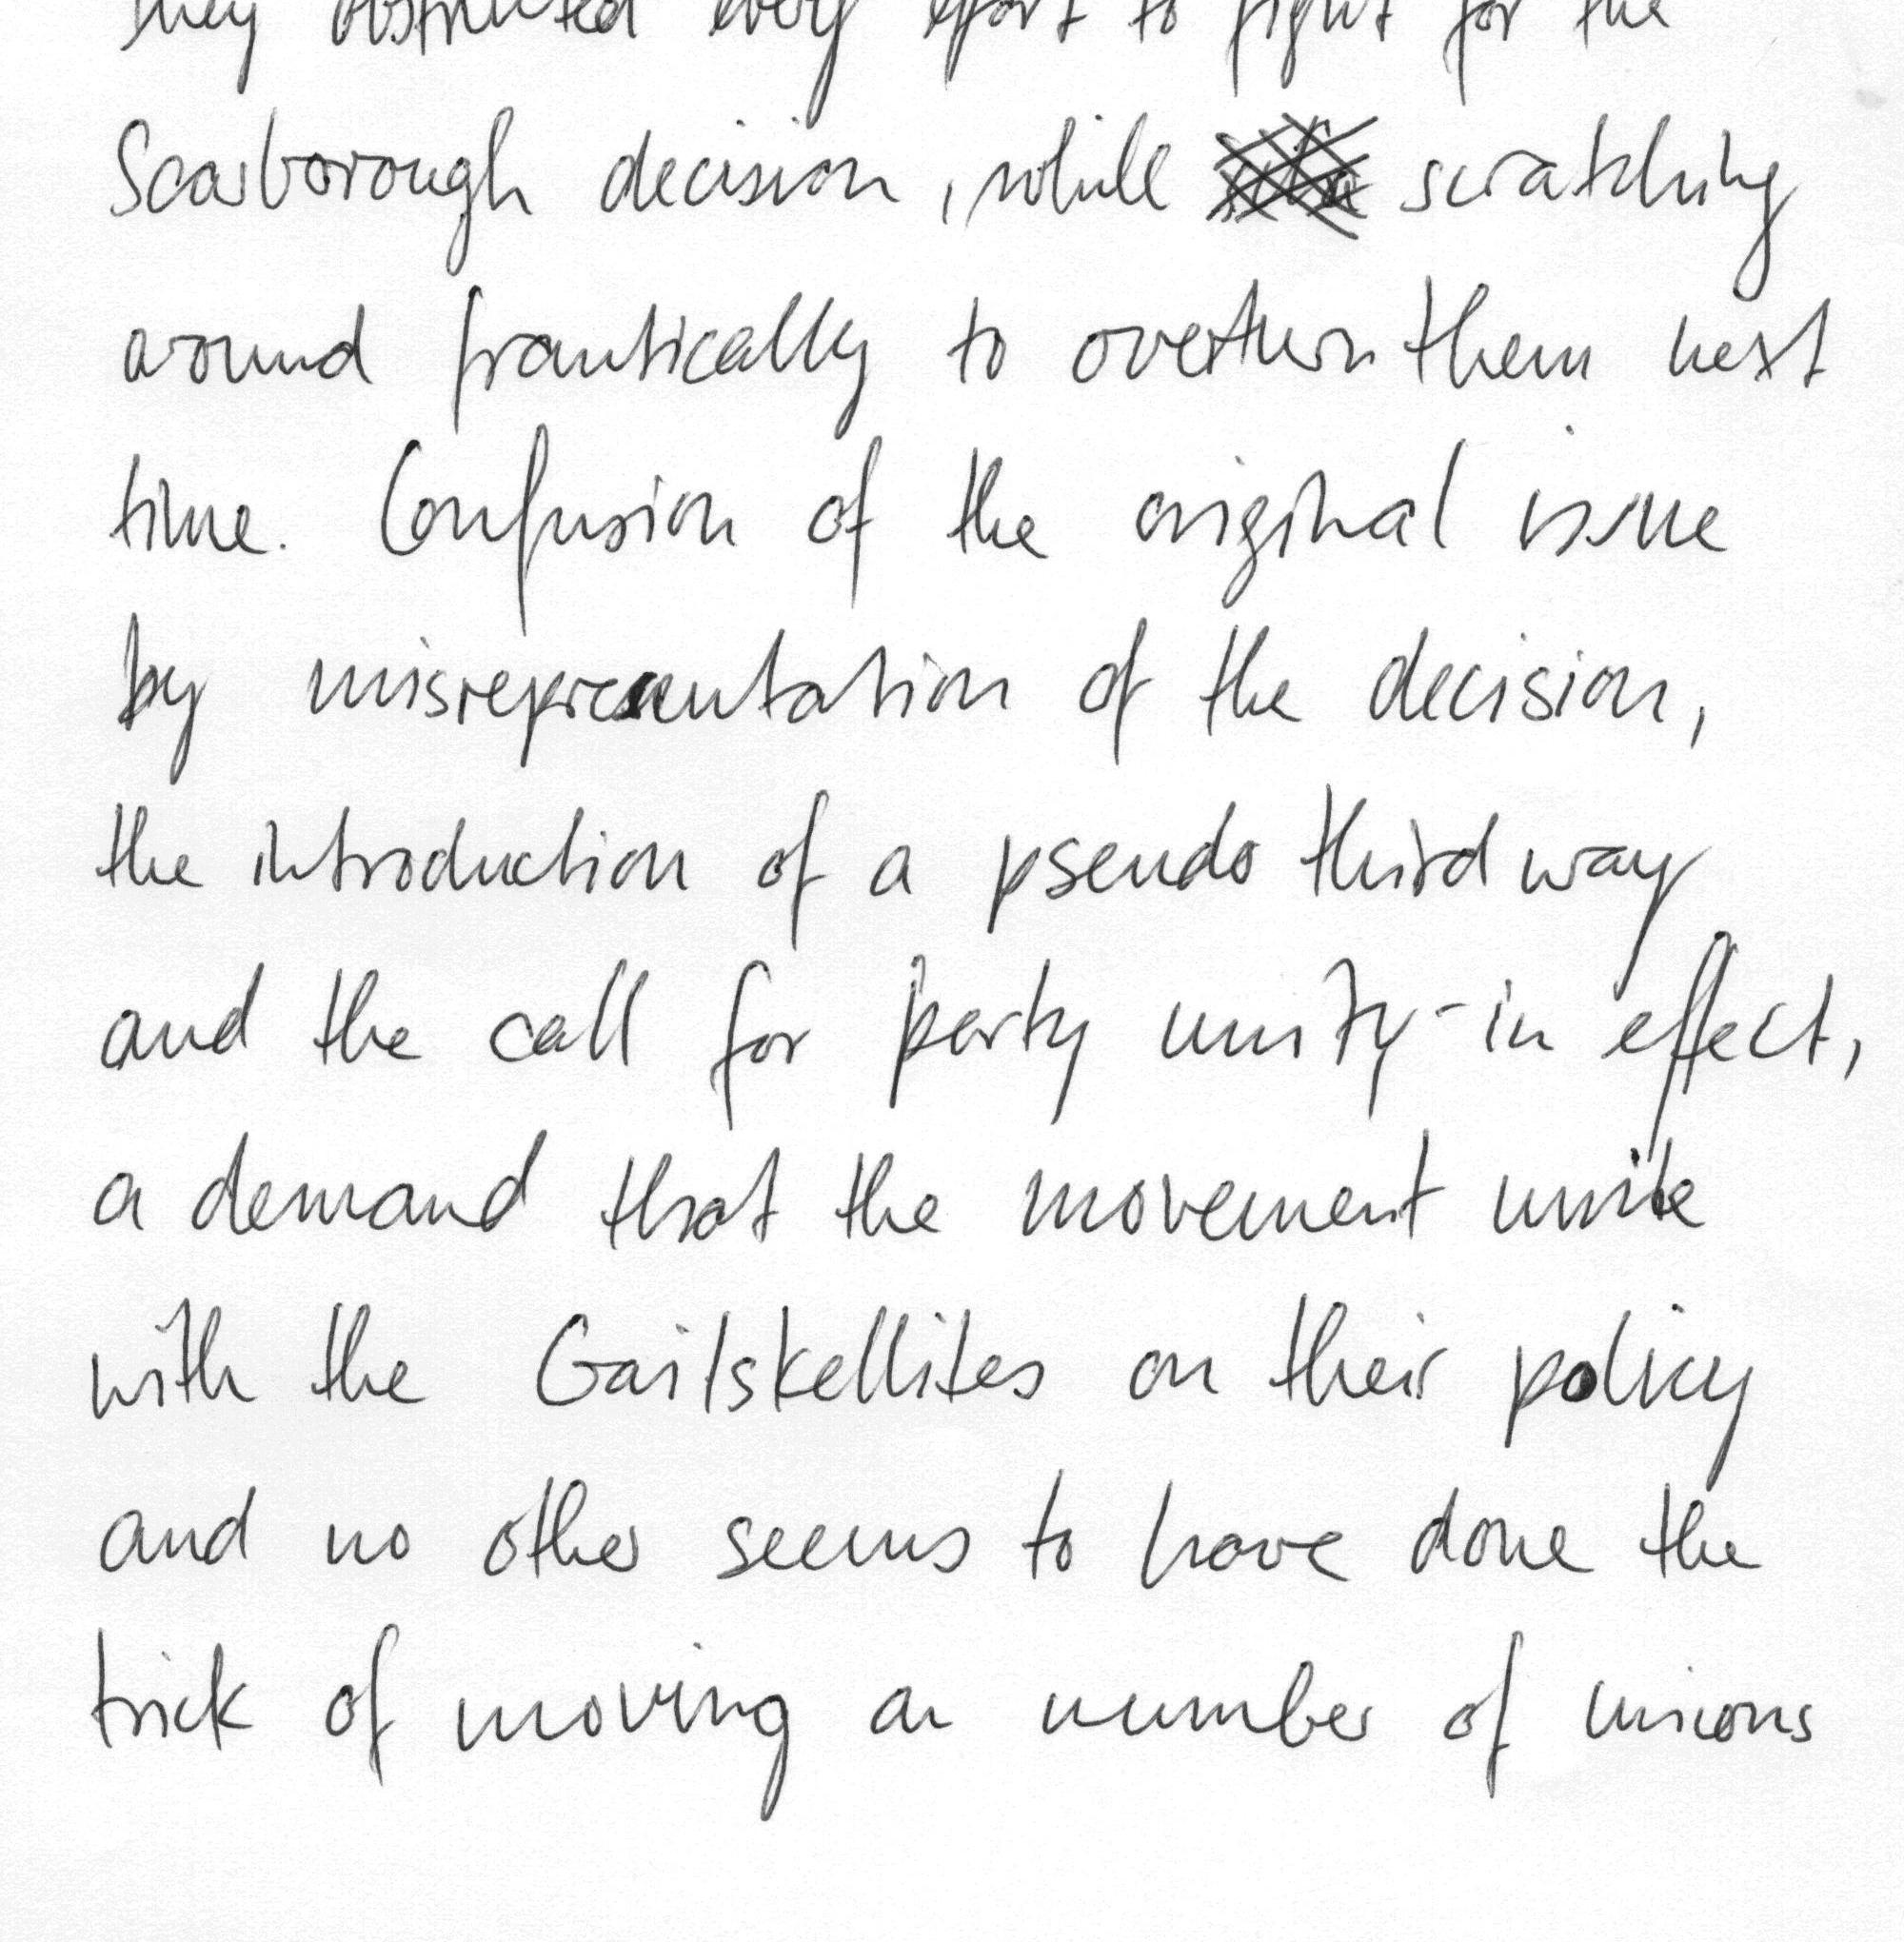 they obstructed every effort to fight for the
Scarborough decision, while scratching
around frantically to overturn them next
time. Confusion of the original issue
by misrepresentation of the decision,
the introduction of a pseudo third way
and the call for party unity - in effect,
a demand that the movement unite
with the Gaitskellites on their policy
and no other seems to have done the
trick of moving a number of unions